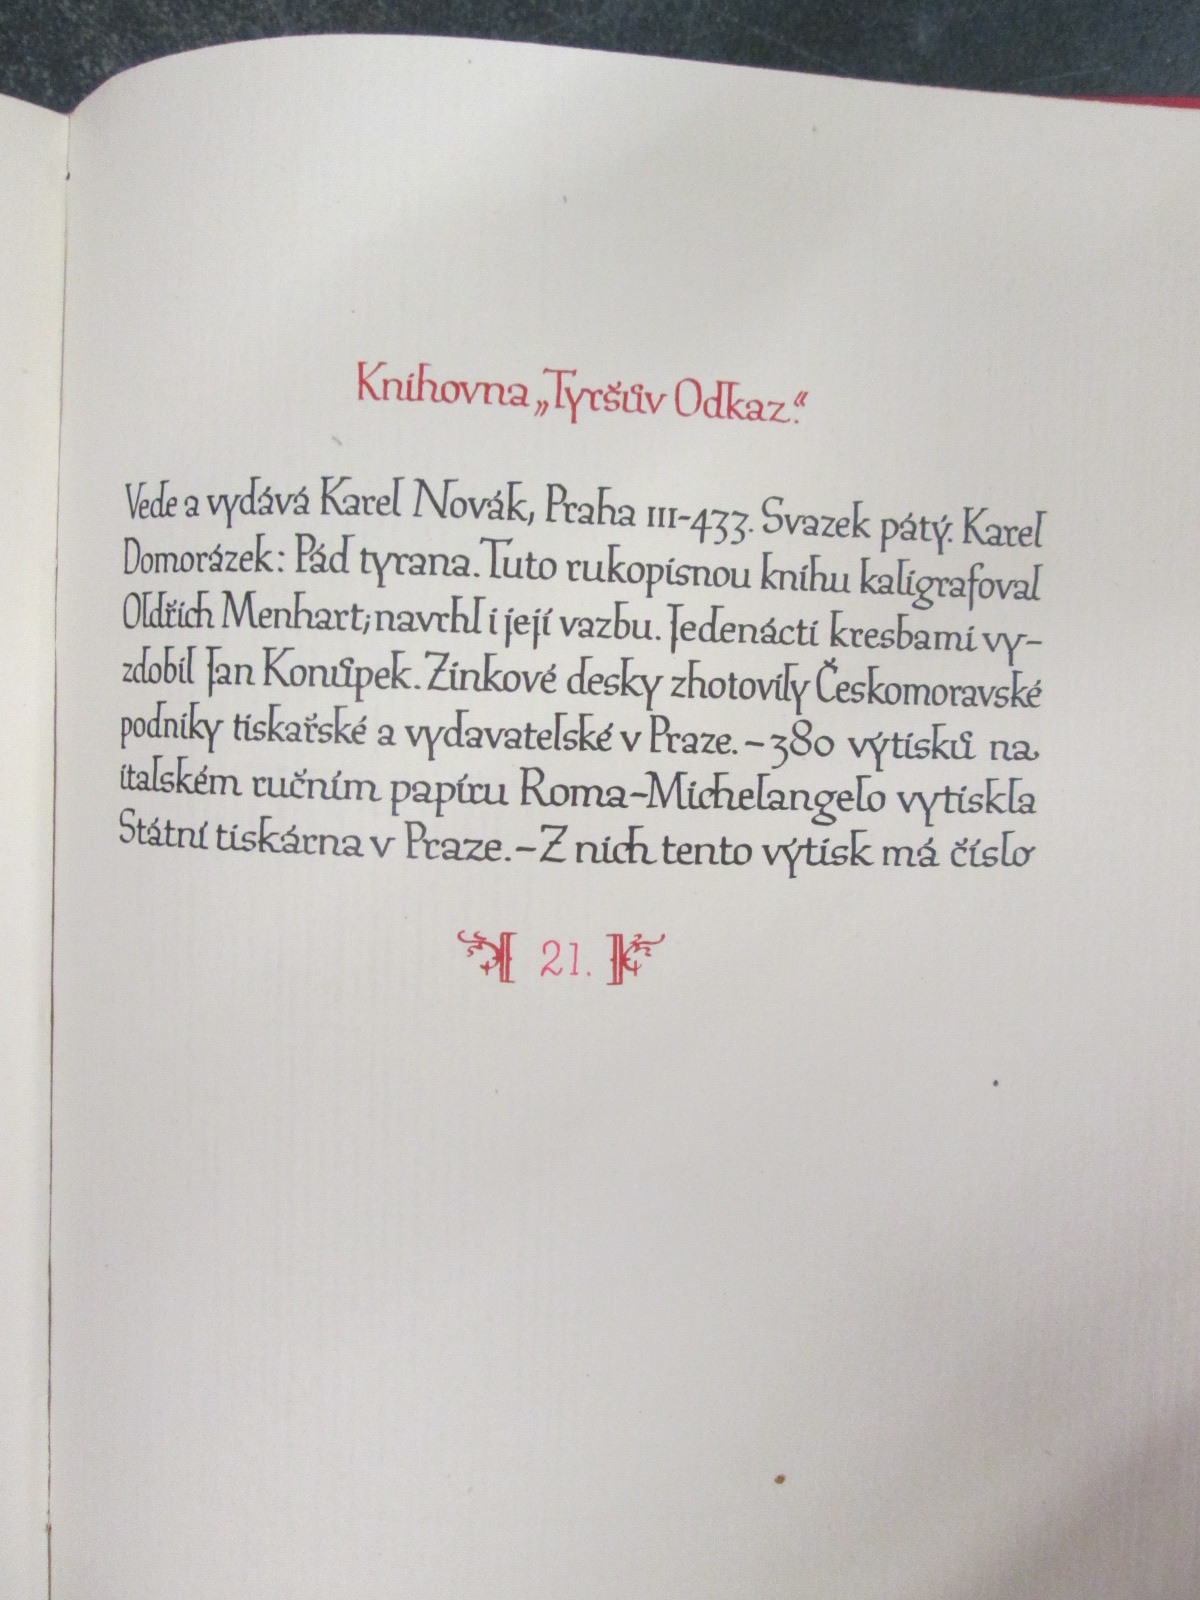 Knihovna „Tyršův Odkaz.“
Vede a vydává Karel Novák, Praha III-433. Svazek pátý. Karel
Domorázek: Pád tyrana. Tuto rukopisnou knihu kaligrafoval
Oldřich Menhart; navrhl i její vazbu. Jedenácti kresbami vy-
zdobil Jan Konůpek. Zinkové desky zhotovily Českomoravské
podniky tiskařské a vydavatelské v Praze. – 380 výtisků na
italském ručním papíru Roma-Michelangelo vytiskla
Státní tiskárna v Praze. – Z nich tento výtisk má číslo
21.